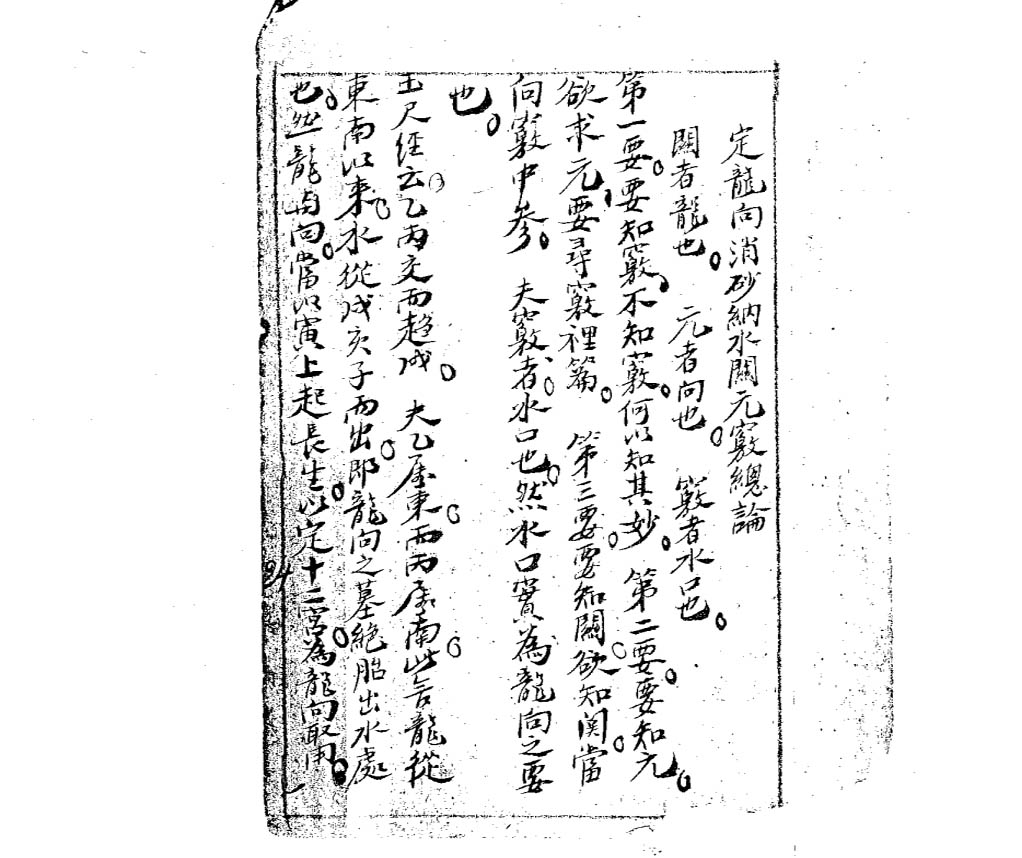 定龍向消砂納水關元竅總論
關者龍也。 元者向也。 竅者水口也。
第一要。要知竅、不知竅。何以知其妙。 第二要。要知元。
欲求元、要尋竅裡篇。 第三要。要知關。欲知関。當
向竅中參。 夫竅、者。水口也。然水口實為龍向之要
也。
玉尺經云。乙丙交而趋戌。 夫乙屬東。而丙屬南。此言龍從
東南以来。水從戌亥子而出。即龍向之墓絕胎出水處
也。然龍與向。當以寅上起長生。以定十二宮。為龍向取用。